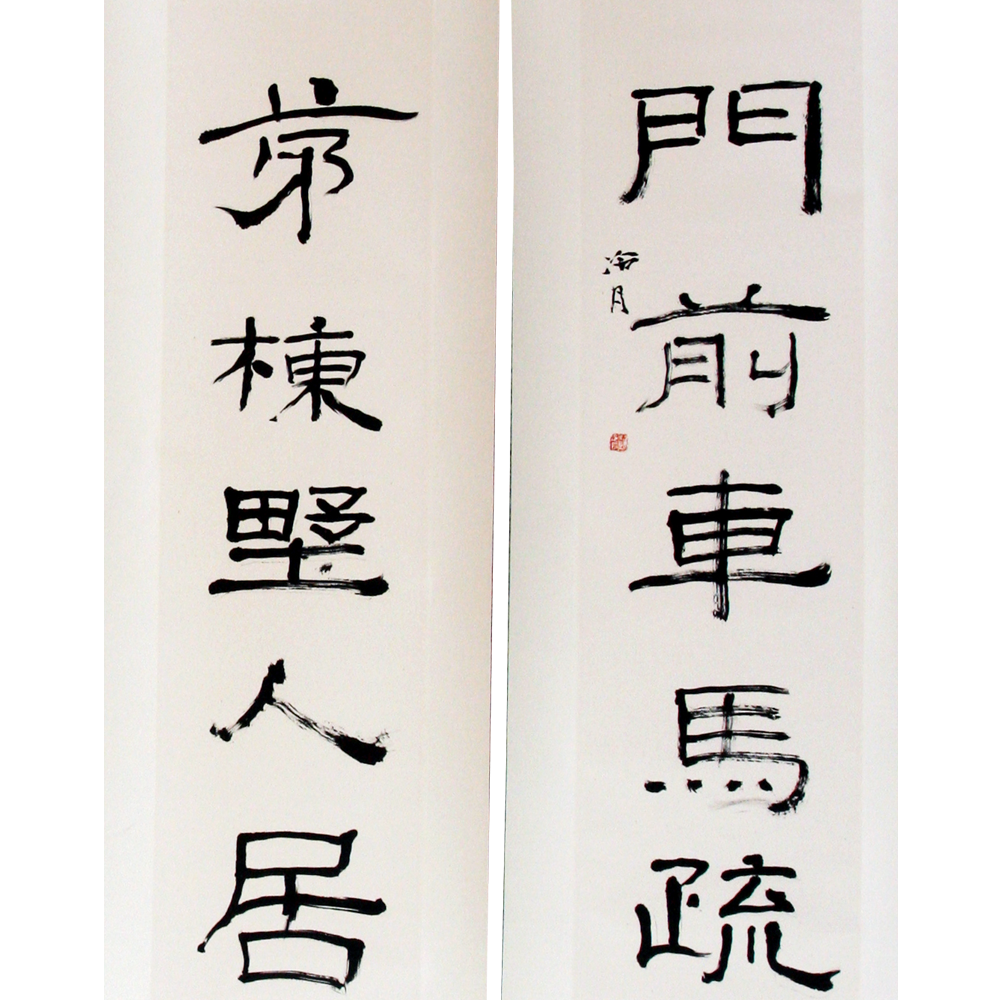 茅棟野人居
門前車馬疏
海月